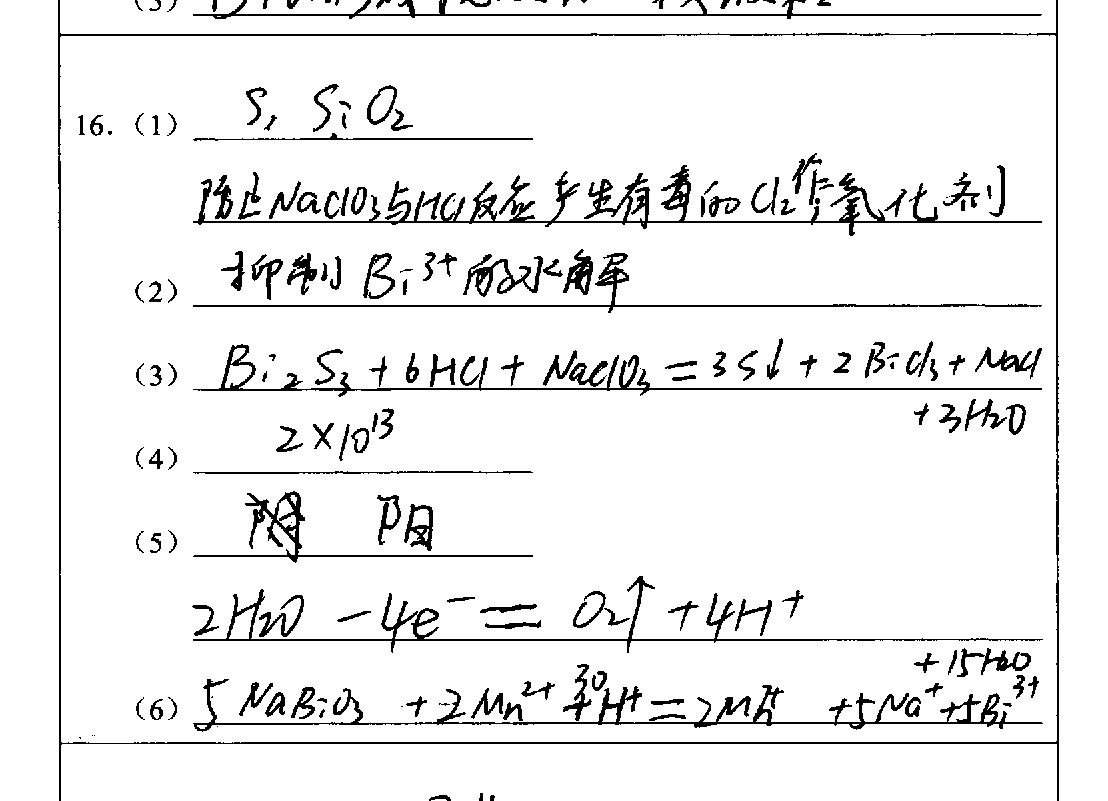 (3)
16. (1) S, SiO₂
防止NaClO₃与HCl反应产生有毒的Cl₂作氧化剂
(2) 抑制Bi³⁺的水解
(3) Bi₂S₃+6HCl+NaClO₃=3S↓+2BiCl₃+NaCl
+3H₂O
(4) 2×10¹³
(5) 阳
2H₂O-4e⁻=O₂↑+4H⁺
+15H₂O
(6) 5NaBiO₃+2Mn²⁺+30H⁺=2Mn⁷⁺+5Na⁺+5Bi³⁺